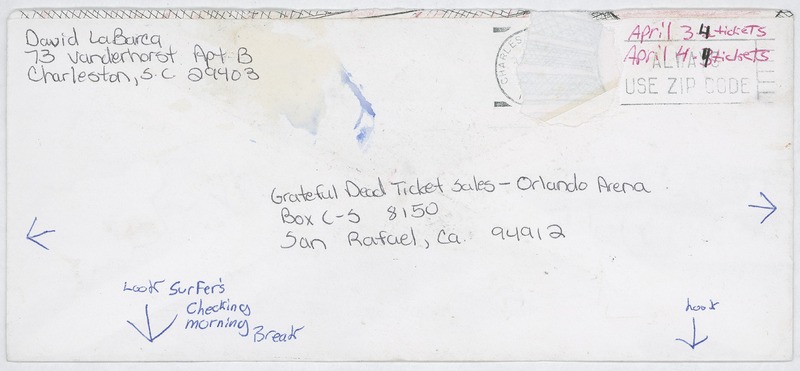 David LaBarca
73 Vanderhorst Apt B
Charleston, S.C 29403
CHARLES
April 3 4 tickets
April 4 4 tickets
ALWAYS
USE ZIP CODE
Grateful Dead Ticket Sales - Orlando Arena
Box C-S 8150
San Rafael, Ca. 94912
Look Surfer's
Checking
morning
Break
Look